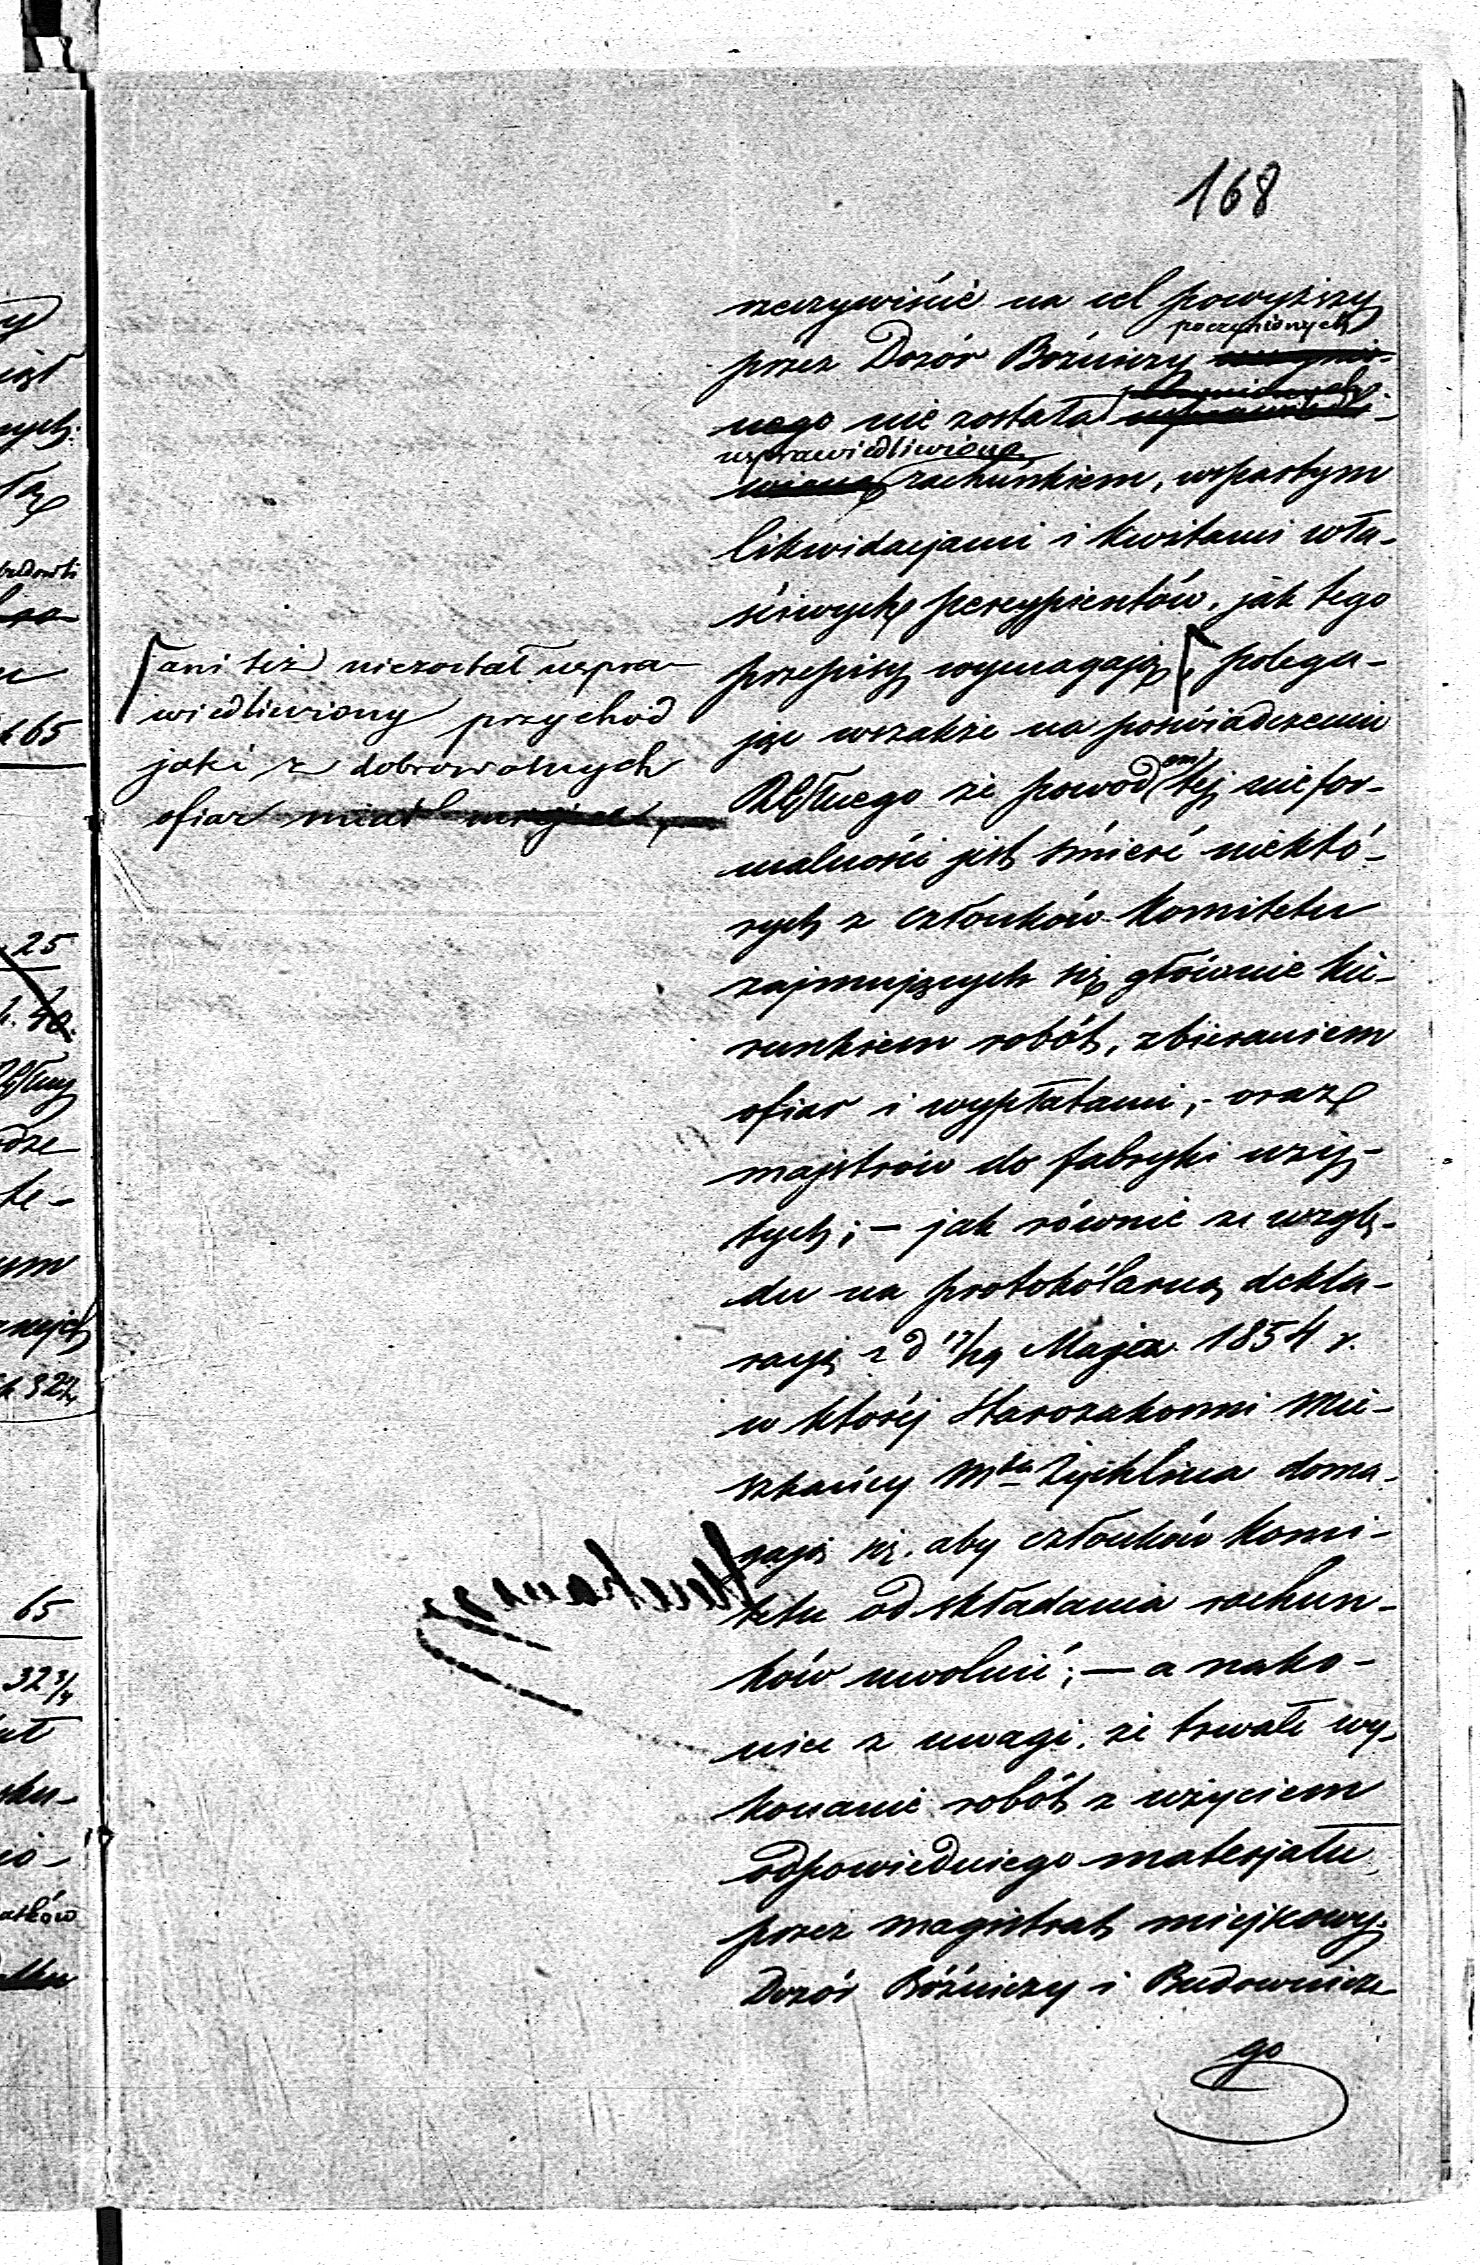 168
rzeczywiście na cel powyższy
poczynionych
przez Dozór Bóżniczy
nego nie została
usprawiedliwiona
rachunkiem, wspartym
likwidacjami i kwitami wła-
ściwych percypientów, jak tego
przepisy wymagają, polega-
jąc wszakże na poświadczeniu
że powodem tej niefor-
malności jest śmierć niektó-
rych z członków Komitetu
zajmujących się głównie kie-
runkiem robót, zbieraniem
ofiar i wypłatami, - oraz
majstrów do fabryki uży-
tych; — jak równie ze wzglę-
du na protokólarną dekla-
racyę z d 17/29 Maja 1854 r.
w której Starozakonni Mie-
szkańcy Mta Żychlina doma-
gają się, aby członków Komi-
tetu od składania rachun-
ków uwolnić; — a nako-
niec z uwagi, że trwałe wy-
konanie robót z użyciem
odpowiedniego materjału,
przez magistrat miejscowy,
Dozór Bóżniczy i Budownicze
go
ani też niezostał uspra-
wiedliwiony przychód
jaki z dobrowolnych
ofiar
65
25
40
65
32 3/4